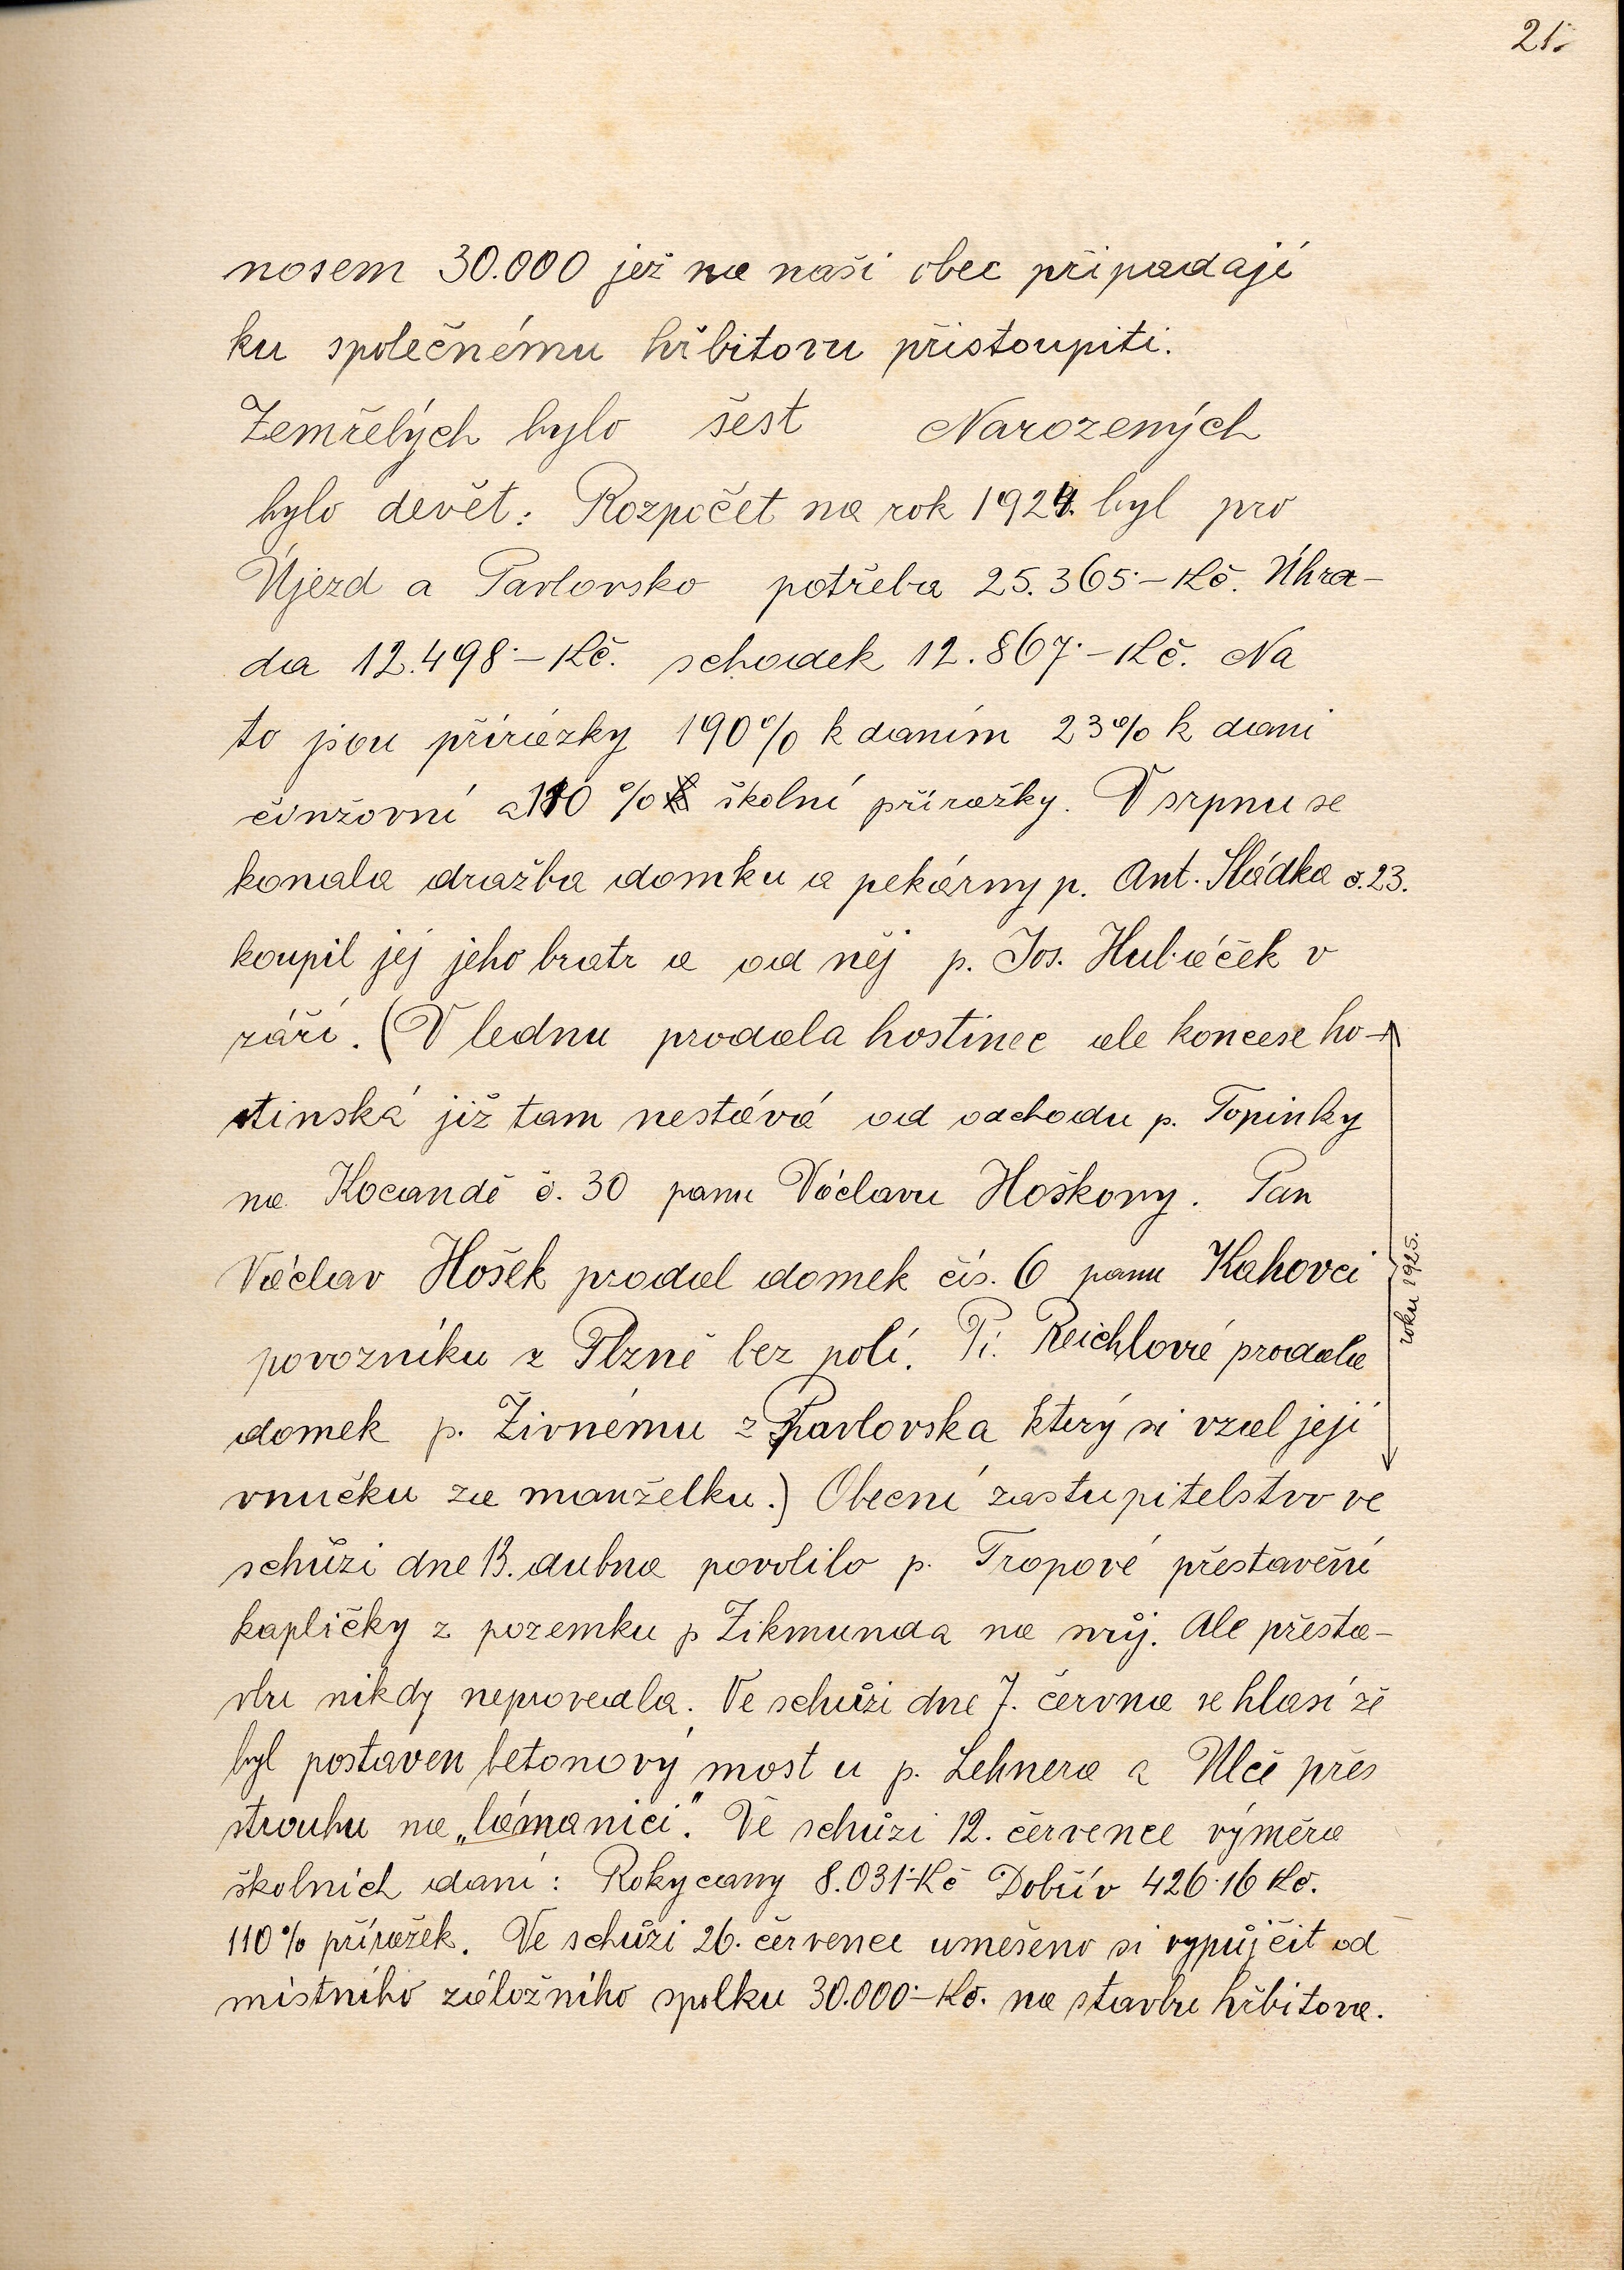 21.
nosem 30.000 jež na naši obec připadají
ku společnému hřbitovu přistoupiti.
Zemřelých bylo šest Narozených
bylo devět: Rozpočet na rok 1924. byl pro
Újezd a Pavlovsko potřeba 25.365·– Kč. Úhra–
da 12.498·– Kč. schodek 12.867·– Kč. Na
to jsou přirázky 190% k daním 23% k dani
činžovní a 110 % školní přirážky. V srpnu se
konala dražba domku a pekárny p. Ant. Sládka č. 23.
koupil jej jeho bratr a od něj p. Jos. Hubáček v
září. (V lednu prodala hostinec ale koncese ho–
stinská již tam nestává od odchodu p. Topinky
na Kocandě č. 30 panu Václavu Hoškovy. Pan
Václav Hošek prodal domek čís. 6 panu Kahovci
povozníku z Plzně bez polí. Pí. Reichlová prodala
domek p. Živnému z Pavlovska který si vzal její
vnučku za manželku.) Obecní zastupitelstvo ve
roku 1925.
schůzi dne 13. dubna povolilo p. Tropové přestavění
kapličky z pozemku p Zikmunda na svůj. Ale přesta–
vbu nikdy neprovedla. Ve schůzi dne 7. června se hlásí že
byl postaven betonový most u p. Lehnera a Ulče přes
strouhu na „lámanici". Ve schůzi 12. července výměra
školních daní: Rokycany 8.031·– Kč Dobřív 426·16 Kč.
110% přirážek. Ve schůzi 26. července usnešeno si vypůjčit od
místního záložního spolku 30.000·– Kč. na stavbu hřbitova.